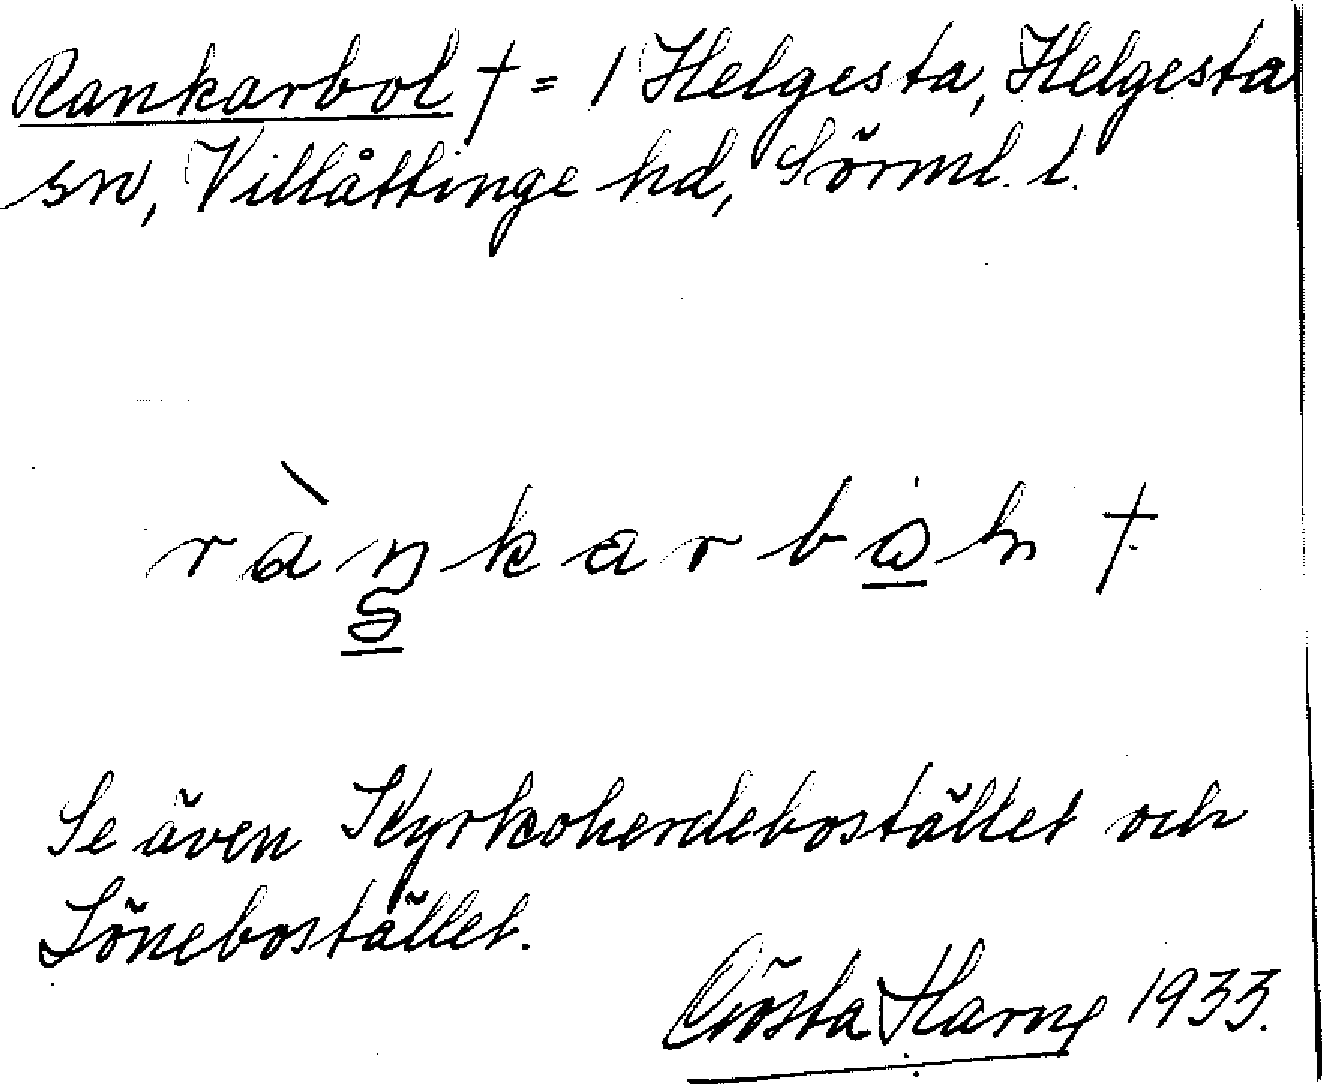 Rankarbol † = 1 Helgesta, Helgesta
sn, Villåttinge hd, Sörml. l.
Se även Kyrkoherdebostället och
Lönebostället.
Gösta 1933.